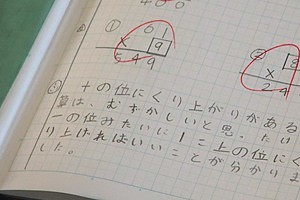 400
① 61
× 9
549
②
×
24
十の位にくり上がりがある
算は、むずかしいと思、たけ
一の位みたいに1こ上の位にく
り上げればいいことが分かりま
した。